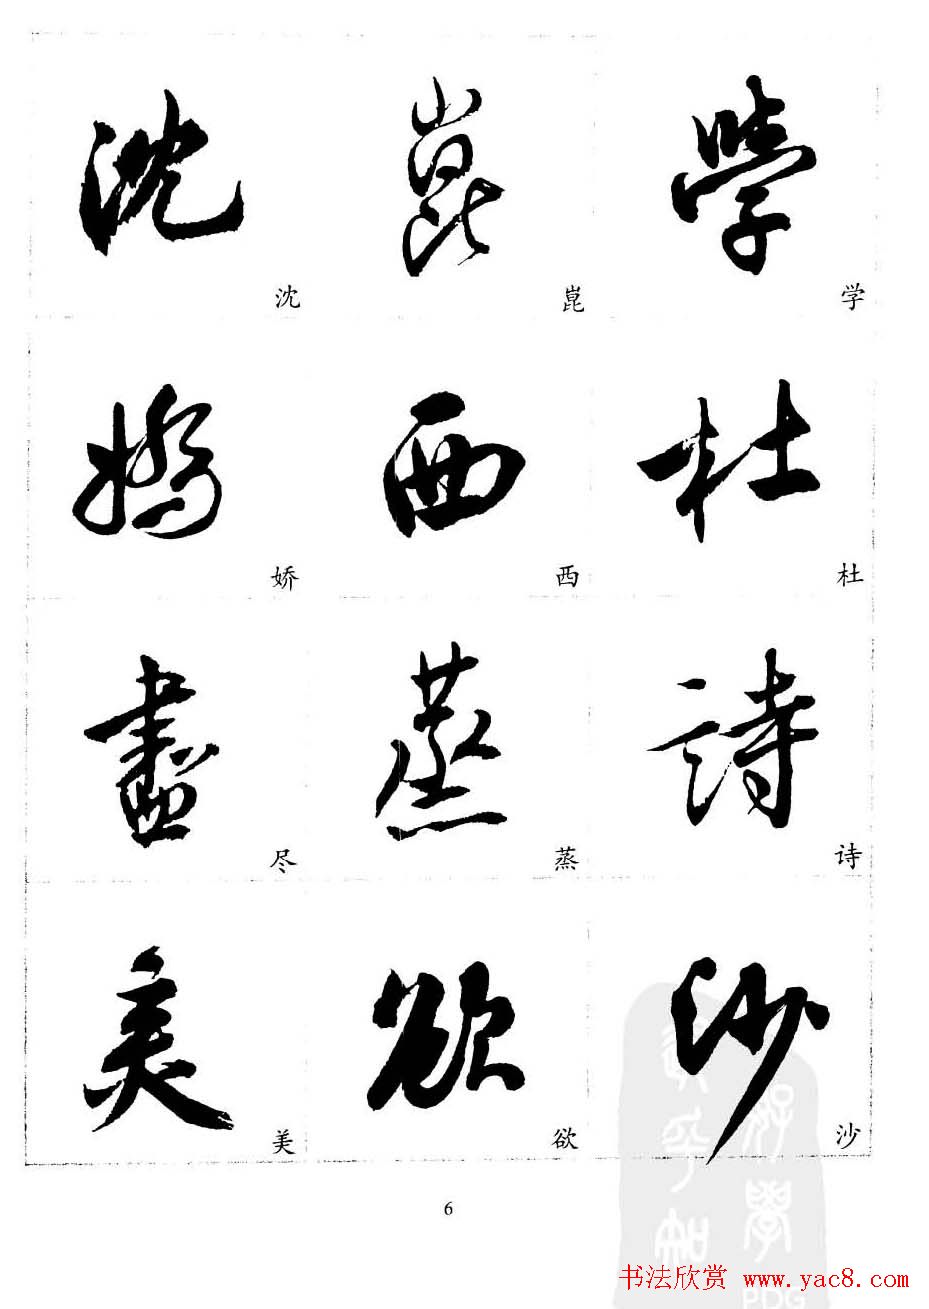 沈 崑 學
沈 崑 学
嬌 西 杜
娇 西 杜
盡 蒸 詩
尽 蒸 诗
美 欲 沙
美 欲 沙
6
书法欣赏 www.yac8.com
PDG